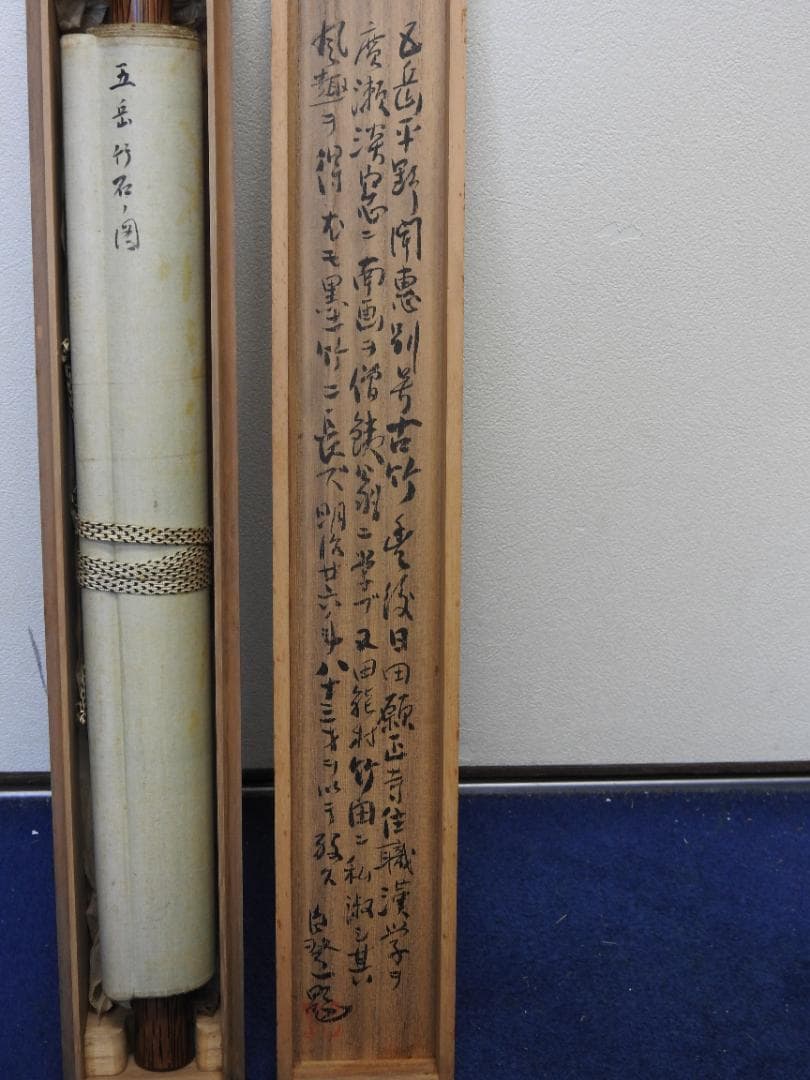 五岳竹石ノ図
五岳平野聞恵別号古竹豊後日田願正寺住職漢学ヲ
廣瀬淡窓ニ南画ヲ僧鉄翁ニ学ブ又田能村竹田ニ私淑シ其
風趣ヲ得尤モ墨竹ニ長ズ明治廿六年八十三才ヲ以テ歿ス
題